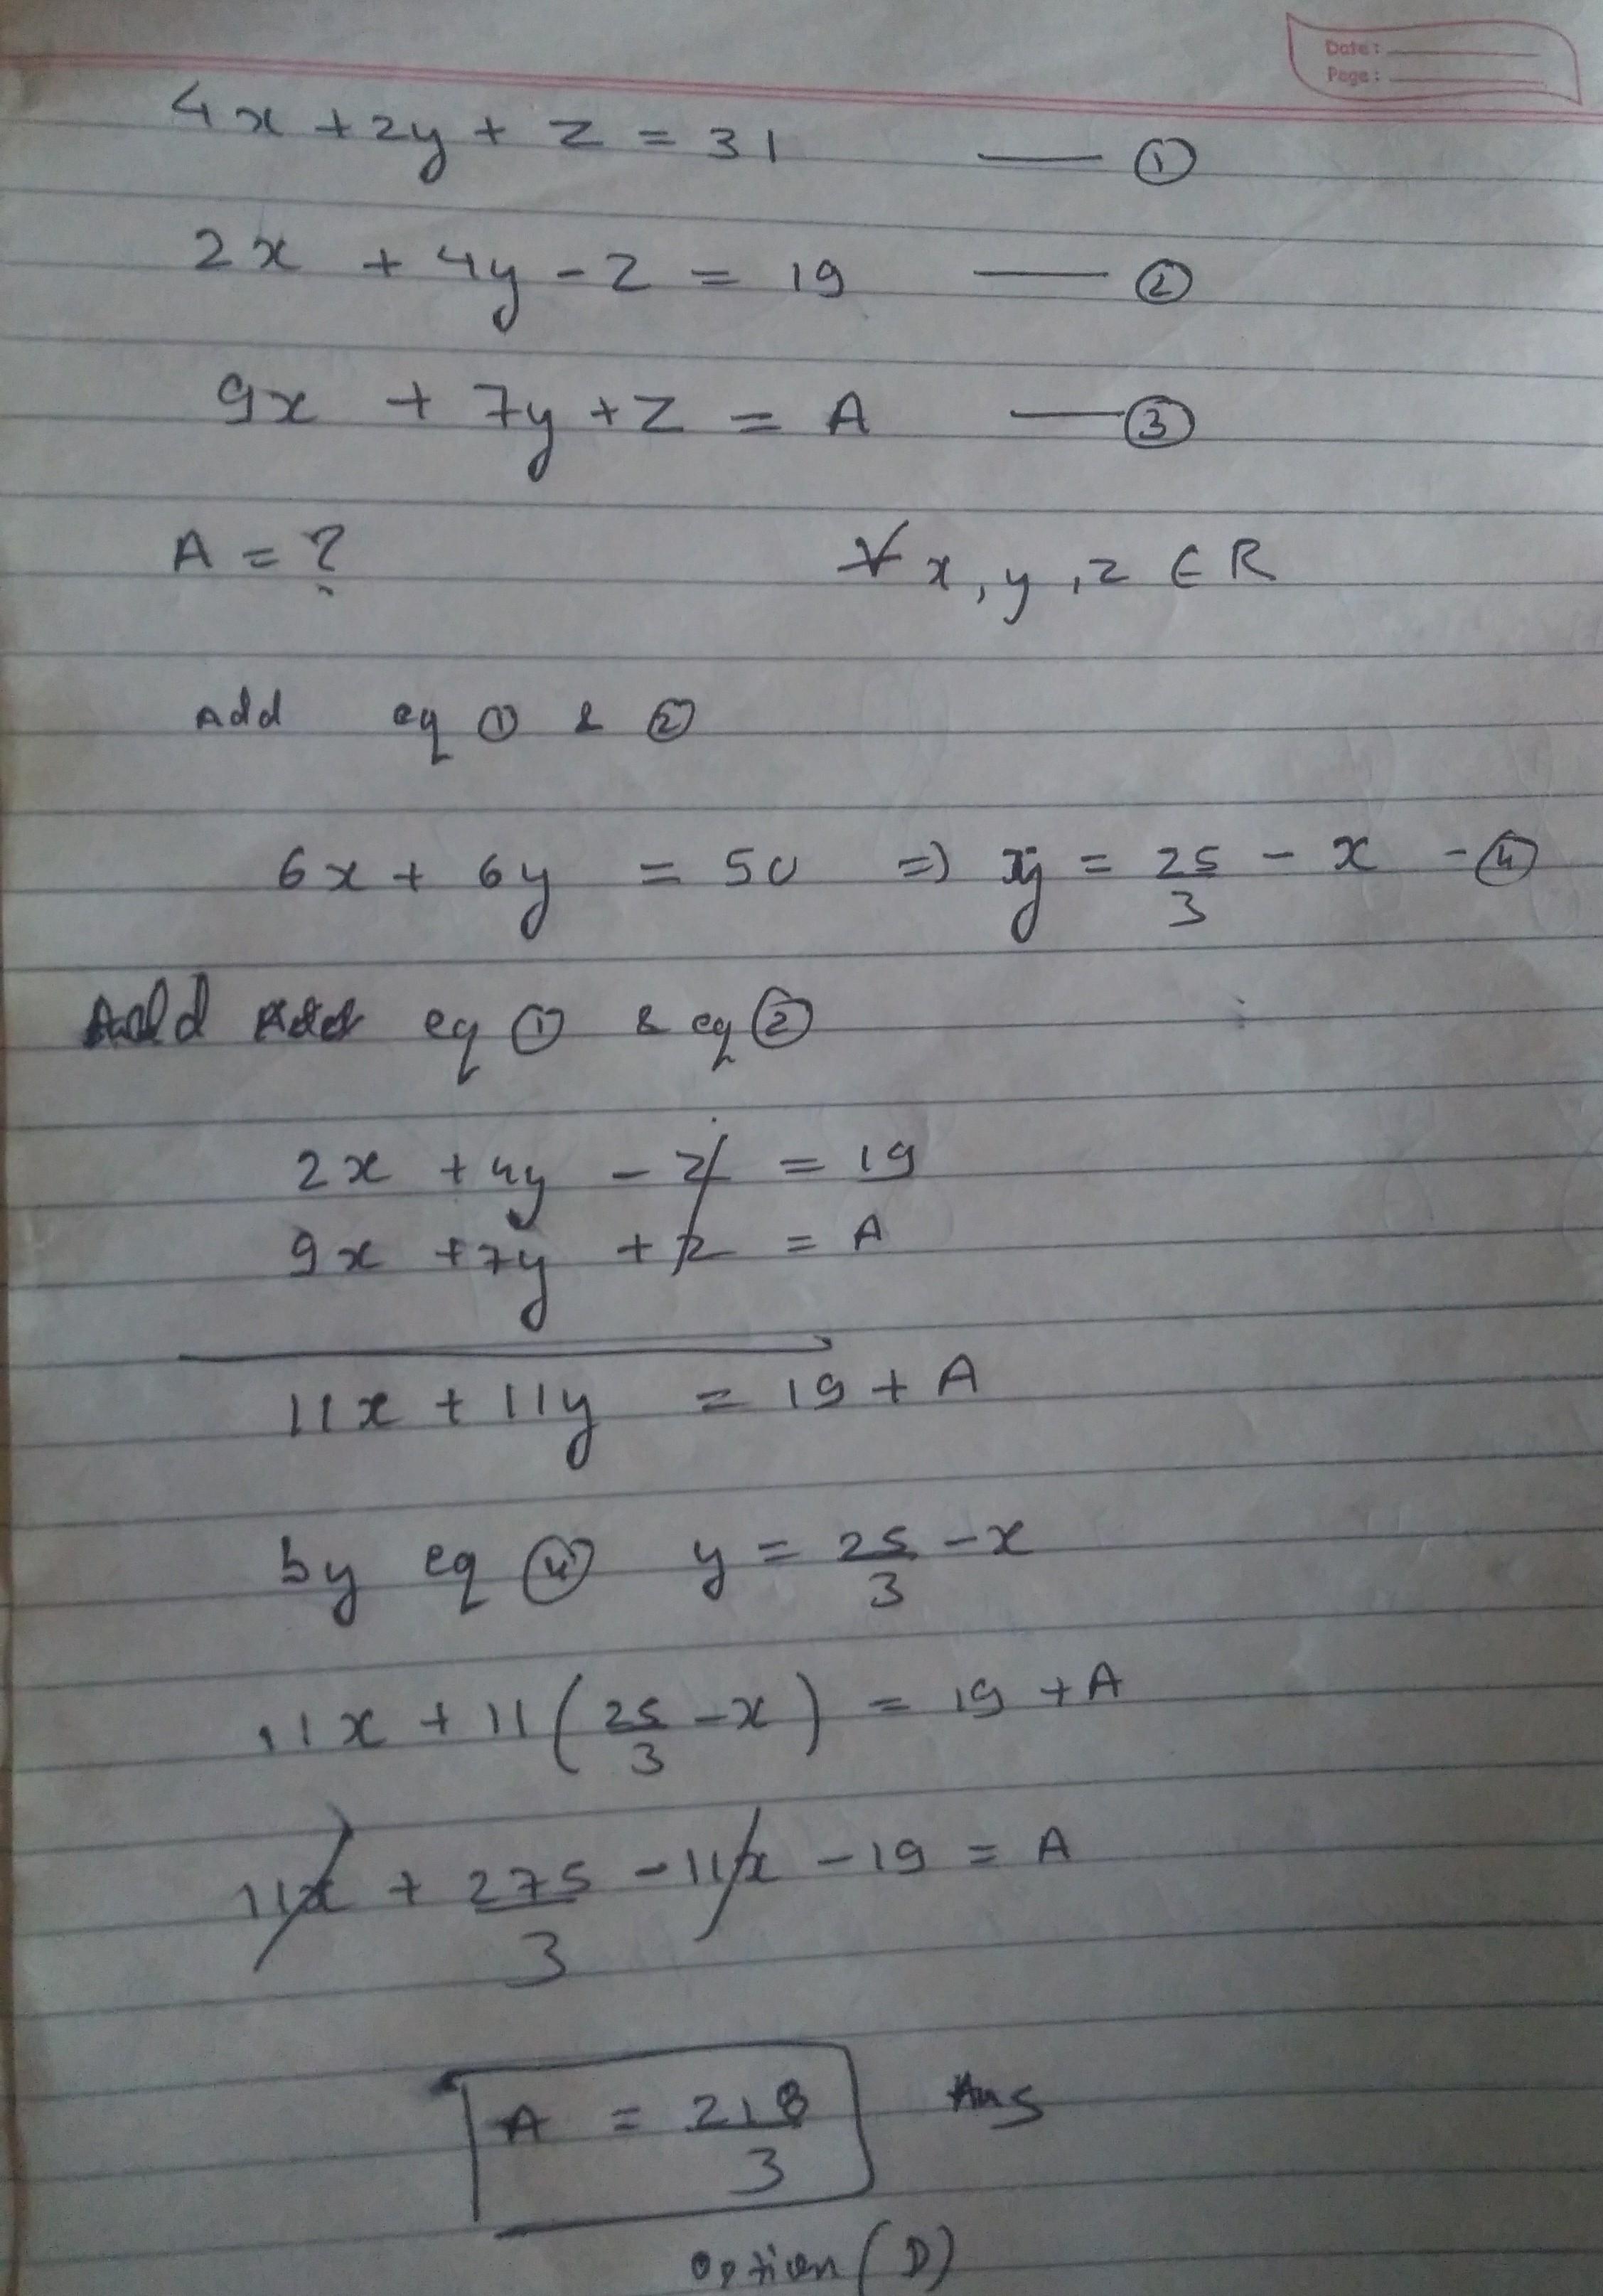 Date:
Page:
4x + 2y + z = 31 — ①
2x + 4y - z = 19 — ②
9x + 7y + z = A — ③
A = ? ∀ x, y, z ∈ R
Add eq ① & ②
6x + 6y = 50 ⇒ y = 25/3 - x - ④
Add eq ① & eq ②
2x + 4y - z = 19
9x + 7y + z = A
11x + 11y = 19 + A
by eq ④ y = 25/3 - x
11x + 11(25/3 - x) = 19 + A
11x + 275/3 - 11x - 19 = A
A = 218/3 Ans
option (D)